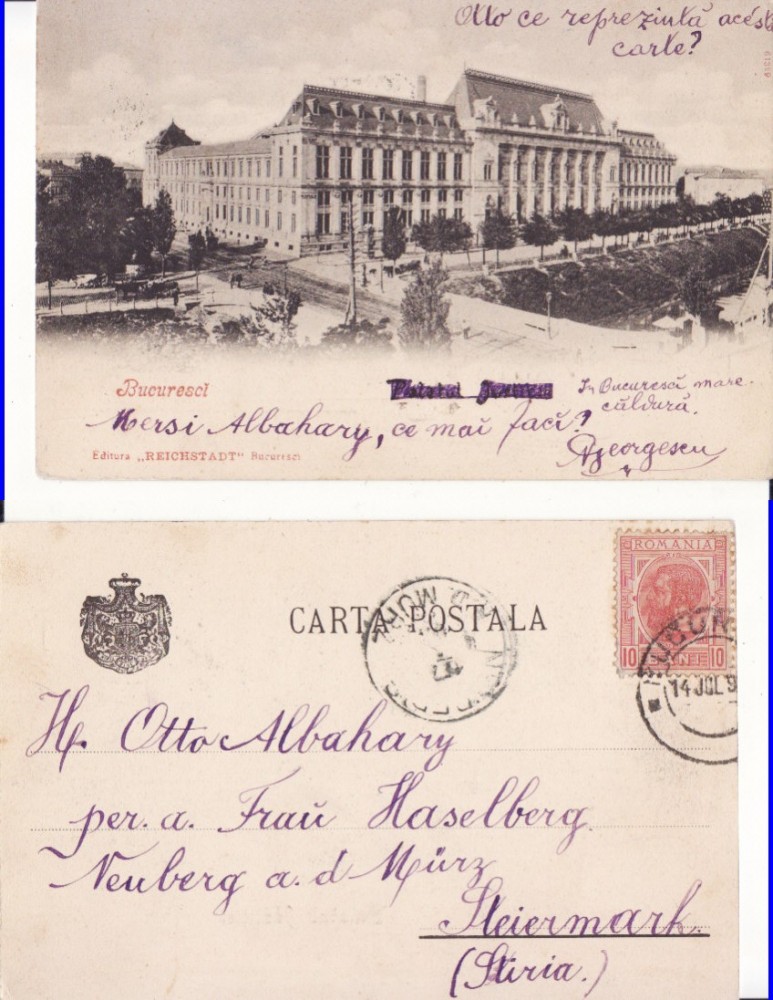 Otto ce reprezintă acéstă
carte?
Bucuresci
Palatul Justiciei
In Bucurescĭ mare
căldură.
Mersi Albahary, ce mai facĭ?
Georgescu
Editura „REICHSTADT" Bucuresci
ROMANIA
10 10
CARTA POSTALA
14 JUL 9
H. Otto Albahary
per. a. Fraŭ Haselberg.
Neuberg a. d Mürz
Steiermark.
(Stiria.)